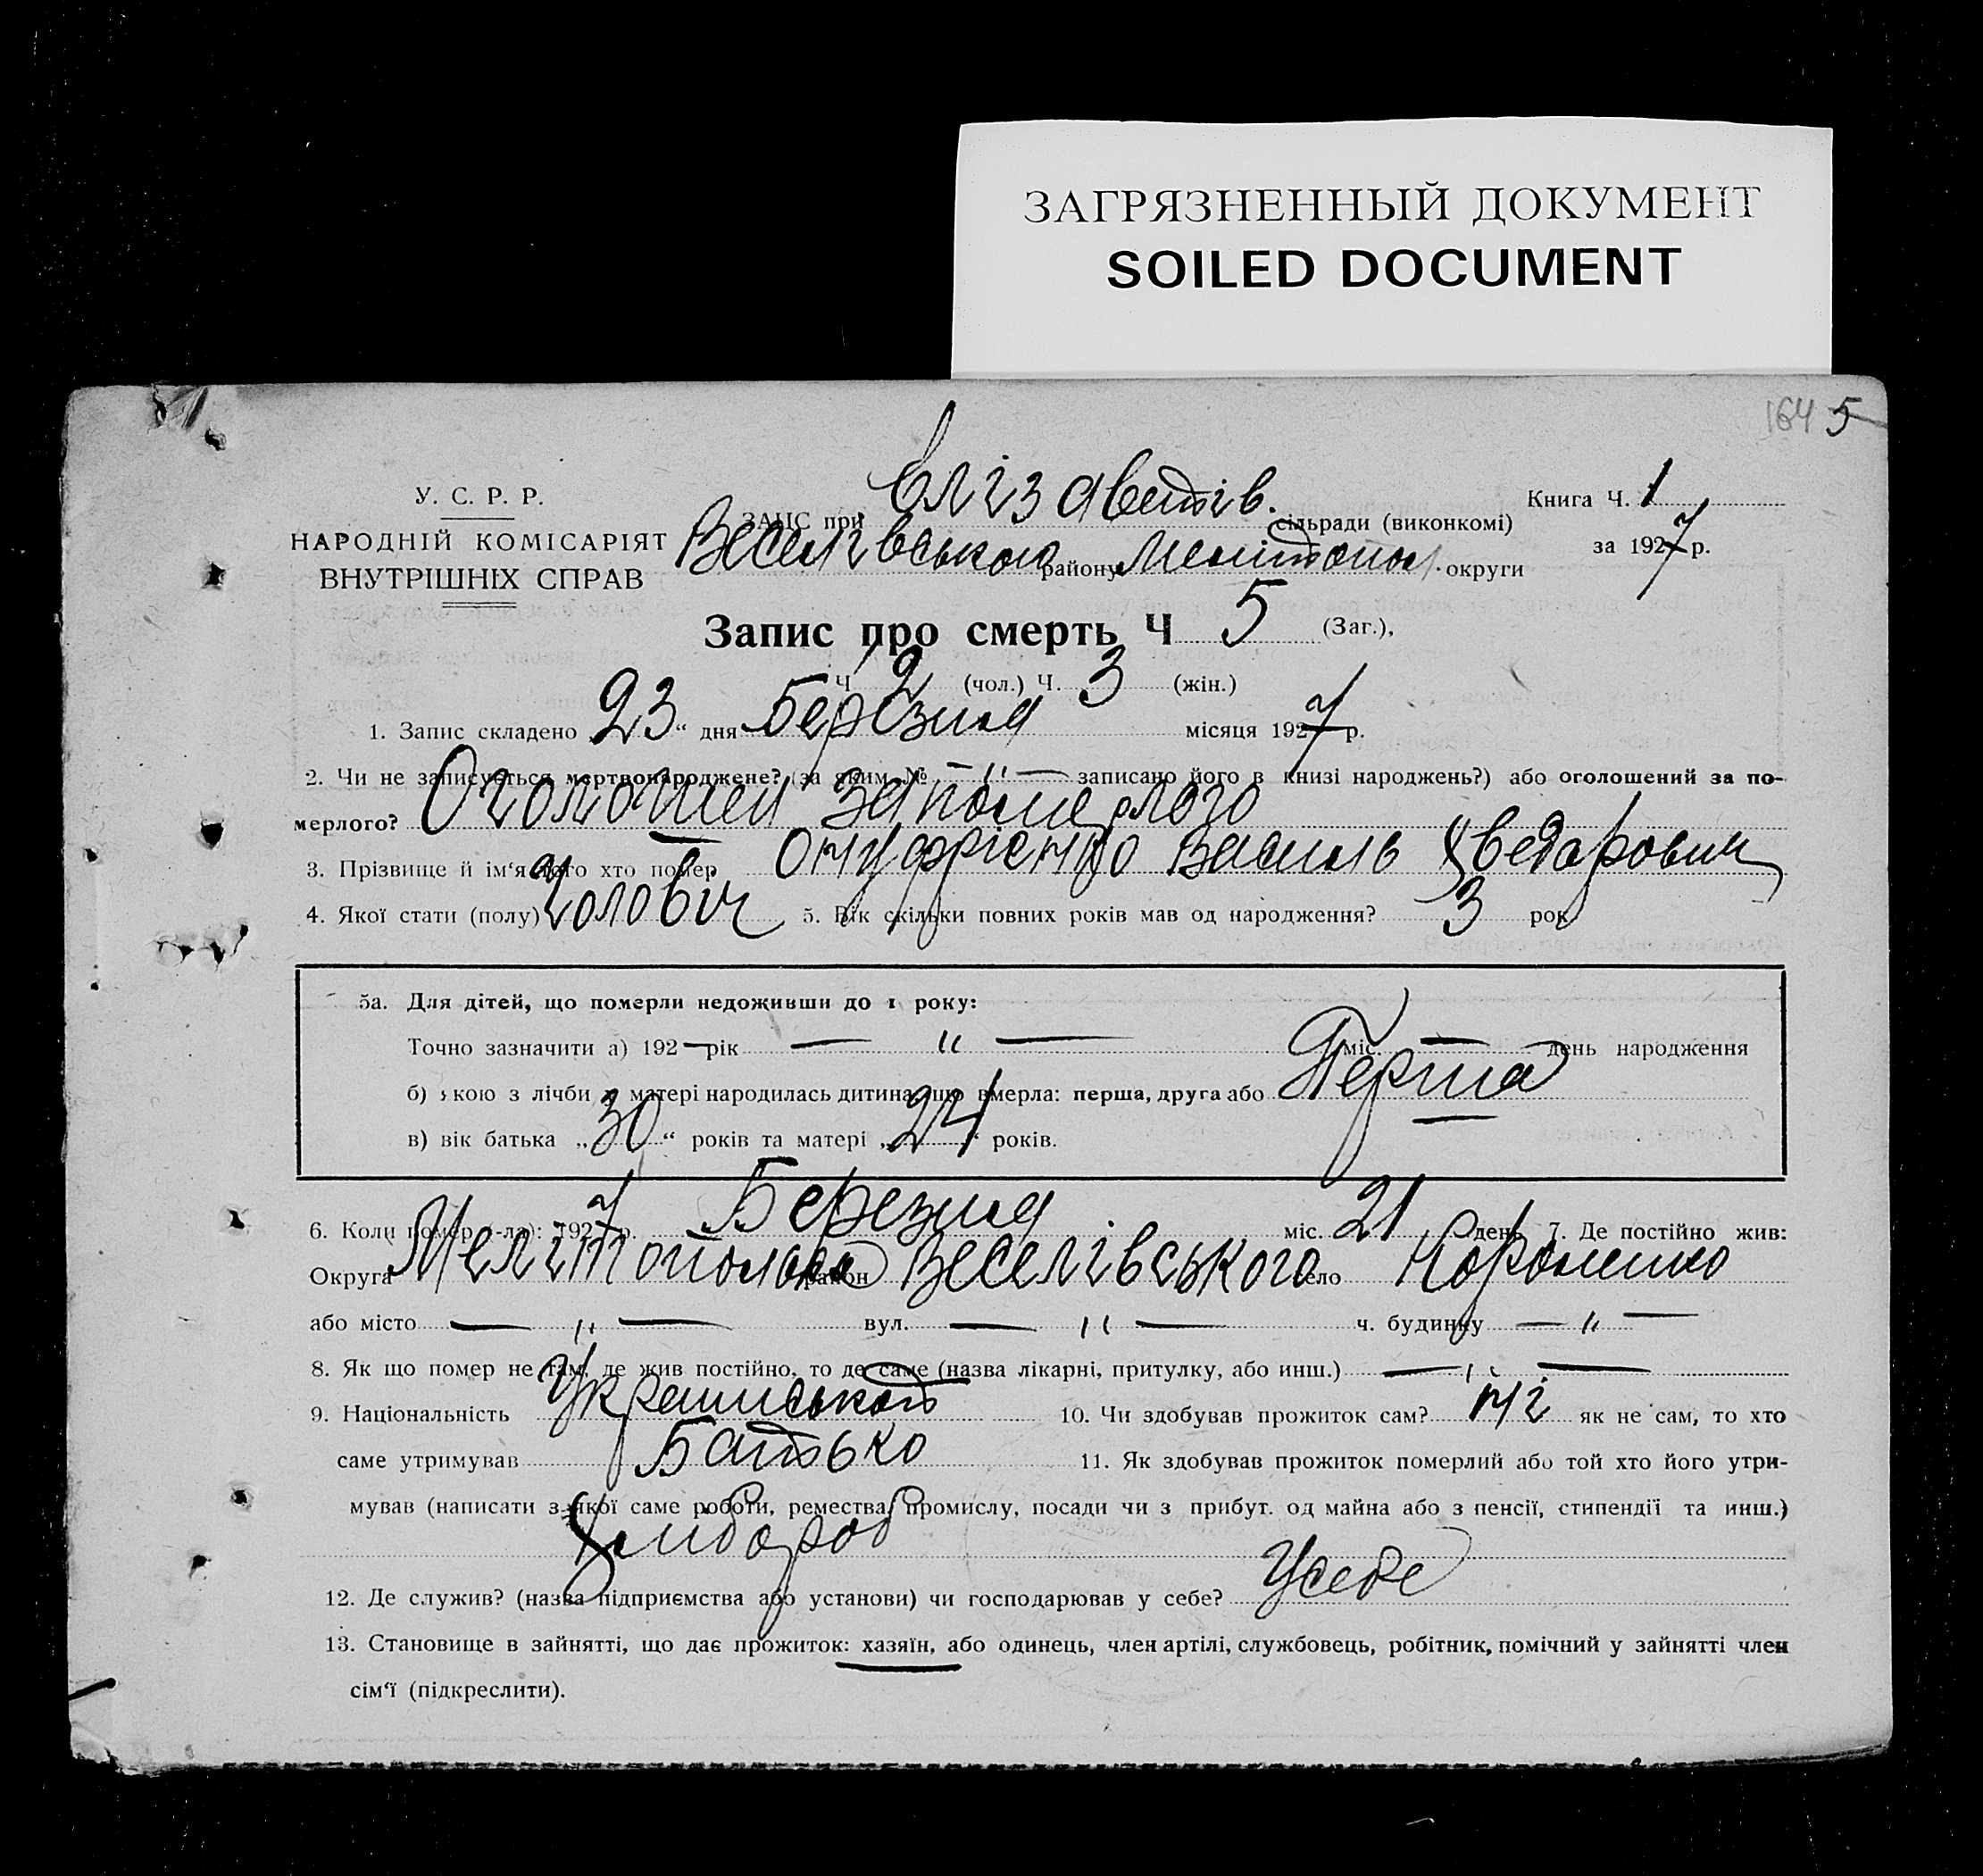 ЗАГРЯЗНЕННЫЙ ДОКУМЕНТ
SOILED DOCUMENT
164 5
У. С. Р. Р.
НАРОДНІЙ КОМІСАРІЯТ
ВНУТРІШНІХ СПРАВ
ЗАПС при Єлізаветів. сільради (виконкомі)
Веселівського району Мелітопол. округи
Книга Ч. 1
за 1927 р.
Запис про смерть Ч 5 (Заг.),
Ч 2 (чол.) Ч. 3 (жін.)
1. Запис складено 23 “ дня Березня місяця 1927 р.
2. Чи не записується мертвонароджене? (за яким № — " — записано його в книзі народжень?) або оголошений за по-
мерлого? Оголошен за померлого
3. Прізвище й ім‘я того хто помер Онуфрієнко Василь Хведорович
4. Якої стати (полу) Чоловіч 5. Вік скільки повних років мав од народження? 3 рок
5а. Для дітей, що померли недоживши до 1 року:
Точно зазначити а) 192— рік — " — міс. — день народження
б) якою з лічби у матері народилась дитина, що вмерла: перша, друга або Перша
в) вік батька „ 30 “ років та матері „ 24 “ років.
6. Коли помер (-ла): 1927 р. Березня міс. 21 день 7. Де постійно жив:
Округа Мелітопольска район Веселівського село
або місто — " — вул. — " — ч. будинку — " —
8. Як що помер не там, де жив постійно, то де саме (назва лікарні, притулку, або инш.) — " —
9. Національність 10. Чи здобував прожиток сам? ні як не сам, то хто
саме утримував Батько 11. Як здобував прожиток померлий або той хто його утри-
мував (написати з якої саме роботи, ремества, промислу, посади чи з прибут. од майна або з пенсії, стипендії та инш.)
Хлібороб
12. Де служив? (назва підприємства або установи) чи господарював у себе? У себе
13. Становище в зайнятті, що дає прожиток: хазяїн, або одинець, член артілі, службовець, робітник, помічний у зайнятті член
сім‘ї (підкреслити).